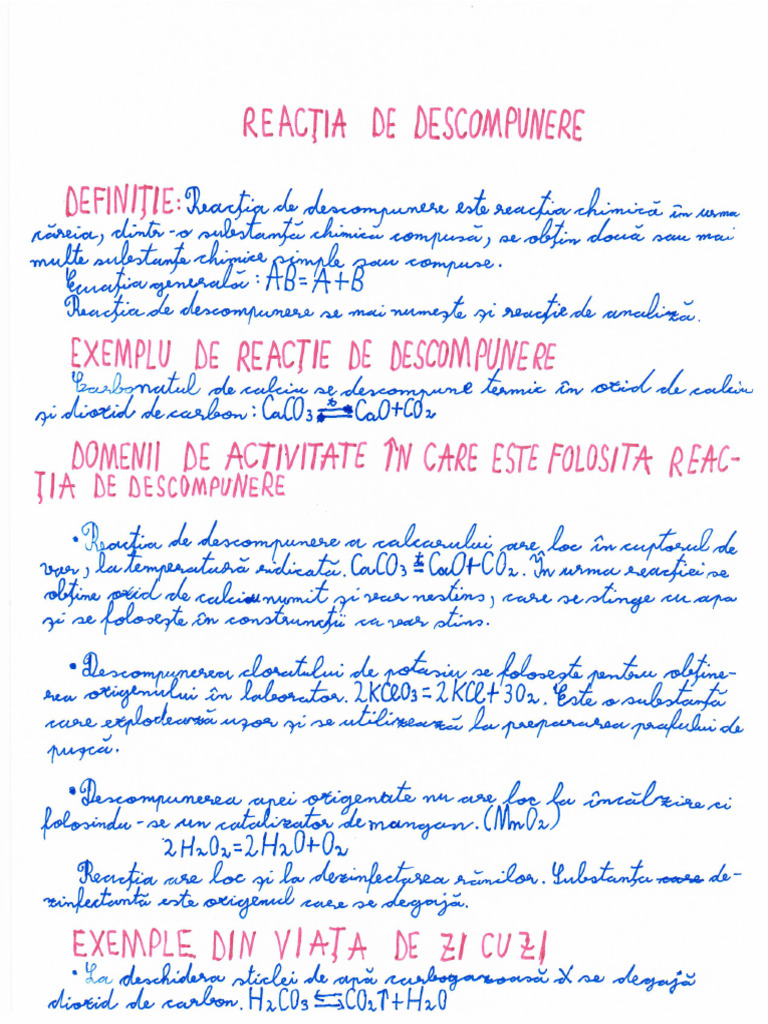 REACȚIA DE DESCOMPUNERE
DEFINIȚIE: Reacția de descompunere este reacția chimică în urma
căreia, dintr-o substanță chimică compusă, se obțin două sau mai
multe substanțe chimice simple sau compuse.
Ecuația generală: AB=A+B
Reacția de descompunere se mai numește și reacție de analiză.
EXEMPLU DE REACȚIE DE DESCOMPUNERE
Carbonatul de calciu se descompune termic în oxid de calciu
și dioxid de carbon: CaCO3 ⇌ CaO+CO2
DOMENII DE ACTIVITATE ÎN CARE ESTE FOLOSITA REAC-
ȚIA DE DESCOMPUNERE
• Reacția de descompunere a calcarului are loc în cuptorul de
var, la temperatură ridicată. CaCO3 = CaO+CO2. În urma reacției se
obține oxid de calciu numit și var nestins, care se stinge cu apa
și se folosește în construncții ca var stins.
• Descompunerea cloratului de potasiu se folosește pentru obține-
rea oxigenului în laborator. 2KClO3=2KCl+3O2. Este o substanță
care explodează ușor și se utilizează la prepararea prafului de
pușcă.
• Descompunerea apei oxigentate nu are loc la încălzire ci
folosindu-se un catalizator de mangan. (MnO2)
2H2O2=2H2O+O2
Reacția are loc și la dezinfectarea rănilor. Substanța care de-
zinfectantă este oxigenul care se degajă.
EXEMPLE DIN VIAȚA DE ZI CU ZI
• La deschidera sticlei de apă carbogazoasă X se degajă
dioxid de carbon. H2CO3⇆CO2↑+H2O